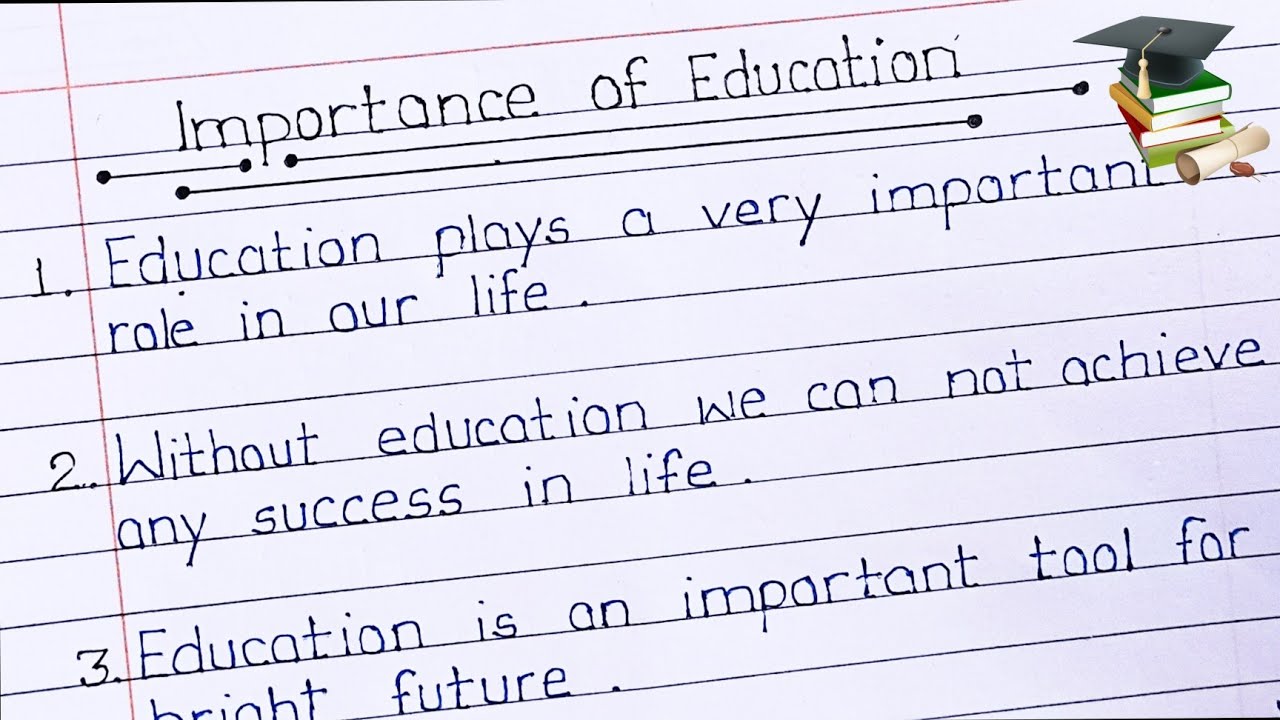 Importance of Education
1. Education plays a very important
role in our life.
2. Without education we can not achieve
any success in life.
3. Education is an important tool for
bright future.